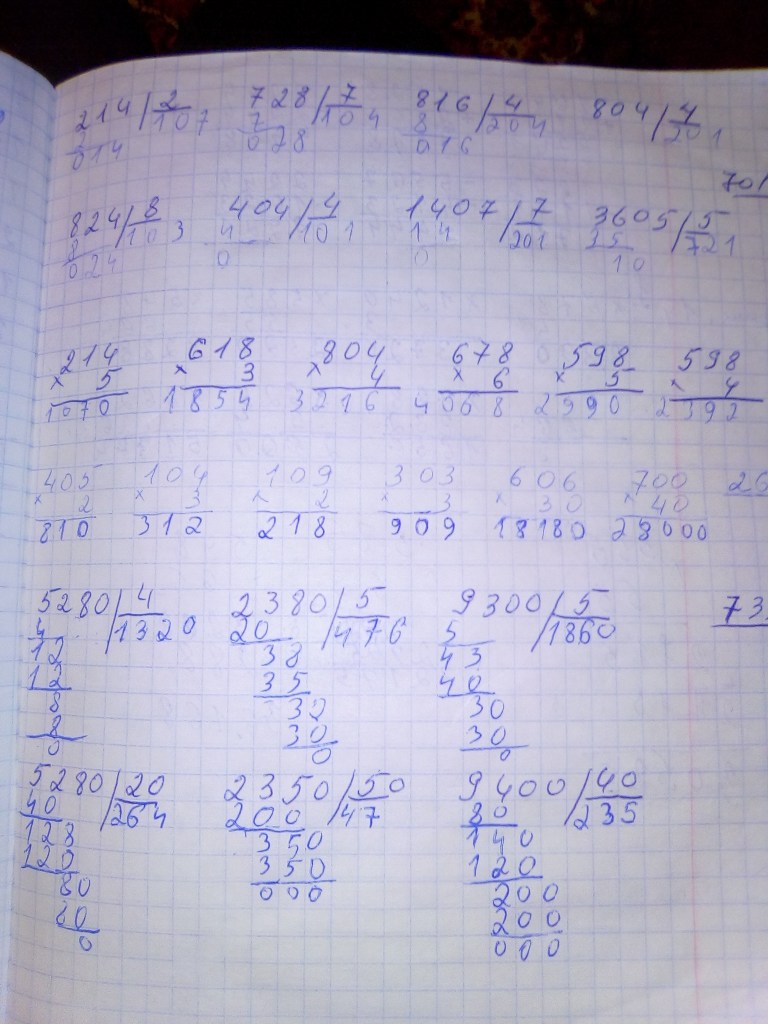 214 / 2 728 / 7 816 / 4 804 / 4
107 104 204 201
2 7 8
014 028 016
701
824 / 8 404 / 4 1407 / 7 3605 / 5
103 101 201 721
8 4 14 35
024 0 0 10
214 618 804 678 598 598
× 5 × 3 × 4 × 6 × 5 × 4
1070 1854 3216 4068 2990 2392
405 104 109 303 606 700
× 2 × 3 × 2 × 3 × 30 × 40
810 312 218 909 18180 28000
5280 / 4 2380 / 5 9300 / 5 73
1320 476 1860
4 20 5
12 38 43
12 35 40
8 30 30
8 30 30
0 0 0
5280 / 20 2350 / 50 9400 / 40
264 47 235
40 200 80
128 350 140
120 350 120
80 000 200
80 200
0 000